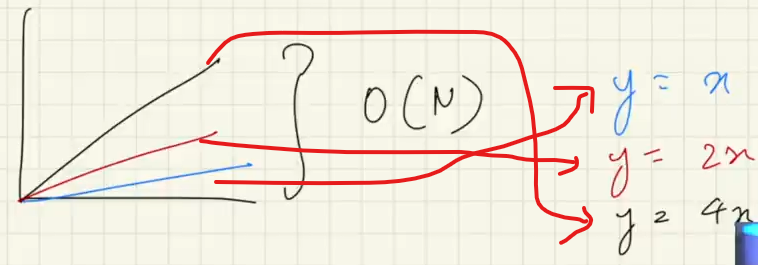 O(N)
y = x
y = 2x
y = 4x